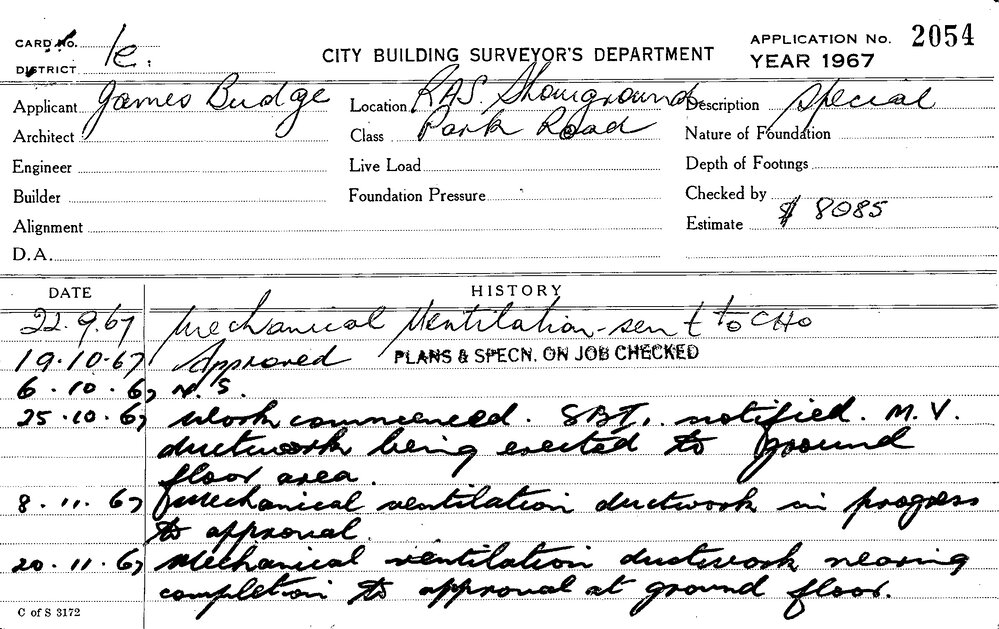 CARD No.
DISTRICT 1e.
CITY BUILDING SURVEYOR'S DEPARTMENT
APPLICATION No. 2054
YEAR 1967
Applicant James Budge
Location RAS. Showground
Description Special
Architect
Class Park Road
Nature of Foundation
Engineer
Live Load
Depth of Footings
Builder
Foundation Pressure
Checked by
Alignment
Estimate $ 8085
D.A.
DATE HISTORY
22.9.67 Mechanical Ventilation - sent to CHO
19.10.67 Approved PLANS & SPECN. ON JOB CHECKED
6.10.67 N.S.
25.10.67 Work commenced. SBI. notified. M.V.
ductwork being erected to ground
floor area.
8.11.67 Mechanical ventilation ductwork in progress
to approval.
20.11.67 Mechanical ventilation ductwork nearing
completion to approval at ground floor.
C of S 3172